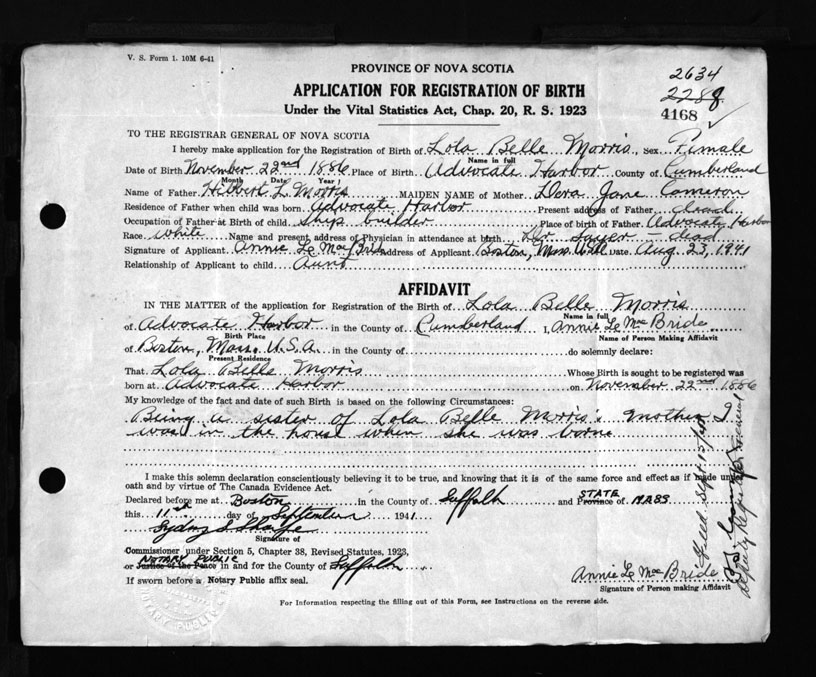 V. S. Form 1. 10M 6-41
PROVINCE OF NOVA SCOTIA
APPLICATION FOR REGISTRATION OF BIRTH
Under the Vital Statistics Act, Chap. 20, R. S. 1923
2634
2288
4168
TO THE REGISTRAR GENERAL OF NOVA SCOTIA
I hereby make application for the Registration of Birth of Lola Belle Morris, Sex Female
Name in full
Date of Birth November 22nd 1886 Place of Birth Advocate Harbor County of Cumberland
Month Date Year
Name of Father L. Morris MAIDEN NAME of Mother Dora Jane Cameron
Residence of Father when child was born Advocate Harbor Present address of Father dead
Occupation of Father at Birth of child Ship builder Place of birth of Father Advocate Harbor
Race White Name and present address of Physician in attendance at birth Dr dead
Signature of Applicant Annie Le Mae Bride Address of Applicant Boston, Mass. Date Aug 23, 1941
Relationship of Applicant to child Aunt
AFFIDAVIT
IN THE MATTER of the application for Registration of the Birth of Lola Belle Morris
Name in full
of Advocate Harbor in the County of Cumberland I, Annie Le Mae Bride
Birth Place Name of Person Making Affidavit
of Boston, Mass. U.S.A. in the County of do solemnly declare:
Present Residence
That Lola Belle Morris Whose Birth is sought to be registered was
born at Advocate Harbor on November 22nd 1886
My knowledge of the fact and date of such Birth is based on the following Circumstances:
Being a sister of Lola Belle Morris's Mother I
was in the house when she was borne
I make this solemn declaration conscientiously believing it to be true, and knowing that it is of the same force and effect as if made under
oath and by virtue of The Canada Evidence Act.
Declared before me at Boston in the County of Suffolk and STATE Province of MASS
this 11th day of September 1941
Sydney S Sharpe
Signature of
Commissioner under Section 5, Chapter 38, Revised Statutes, 1923,
NOTARY PUBLIC
or Justice of the Peace in and for the County of Suffolk
If sworn before a Notary Public affix seal.
Annie Le Mae Bride
Signature of Person making Affidavit
For Information respecting the filling out of this Form, see Instructions on the reverse side.
Filed Sept 15/41
Deputy Registrar General